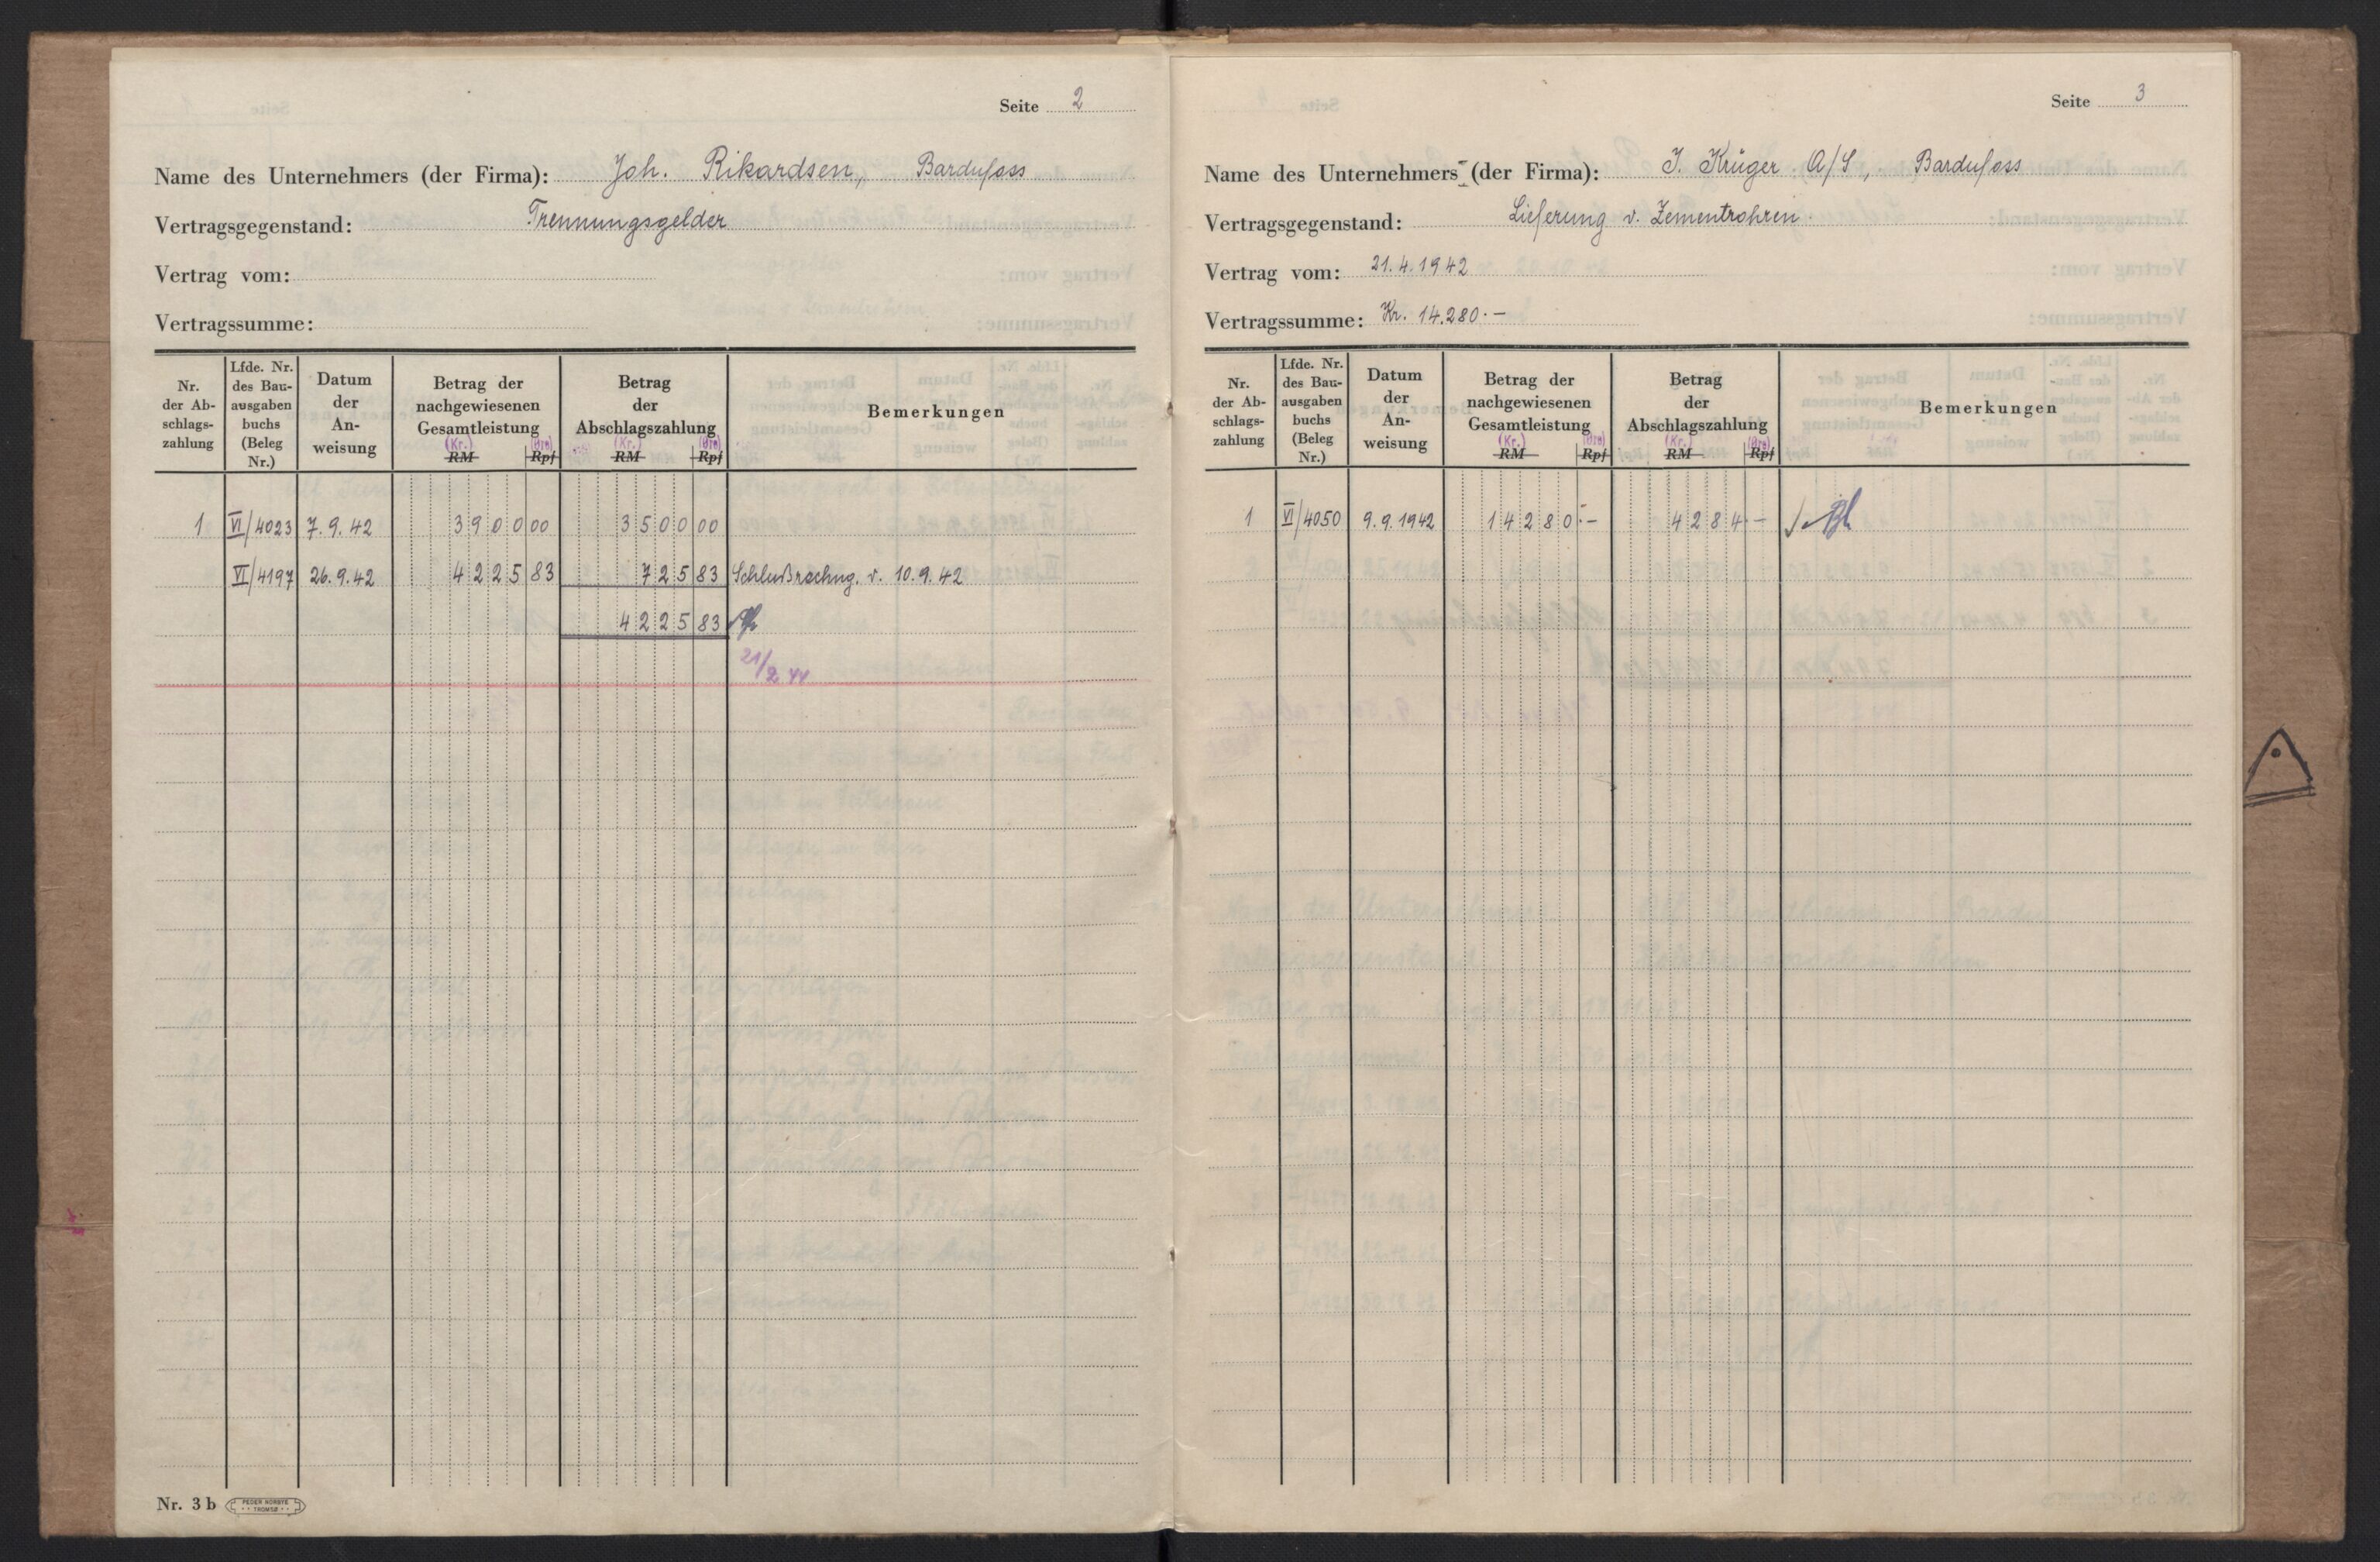 Seite 2
Name des Unternehmers (der Firma): Joh. Rikardsen, Bardufoss
Vertragsgegenstand: Trennungsgelder
Vertrag vom:
Vertragssumme:
Nr. der Abschlagszahlung
Lfde. Nr. des Bauausgabenbuchs (Beleg Nr.)
Datum der Anweisung
Betrag der nachgewiesenen Gesamtleistung
(Kr.) (Øre)
RM Rpf
Betrag der Abschlagszahlung
(Kr.) (Øre)
RM Rpf
Bemerkungen
1 VI/4023 7.9.42 3900 00 3500 00
VI/4197 26.9.42 4225 83 725 83 Schlußrechng. v. 10.9.42
4225 83
21/2 44
Nr. 3 b PEDER NORBYE TROMSØ
Seite 3
Name des Unternehmers (der Firma): J. Krüger A/S, Bardufoss
Vertragsgegenstand: Lieferung v. Zementrohren
Vertrag vom: 21.4.1942
Vertragssumme: Kr. 14.280.-
Nr. der Abschlagszahlung
Lfde. Nr. des Bauausgabenbuchs (Beleg Nr.)
Datum der Anweisung
Betrag der nachgewiesenen Gesamtleistung
(Kr.) (Øre)
RM Rpf
Betrag der Abschlagszahlung
(Kr.) (Øre)
RM Rpf
Bemerkungen
1 VI/4050 9.9.1942 14280.- 4284.-